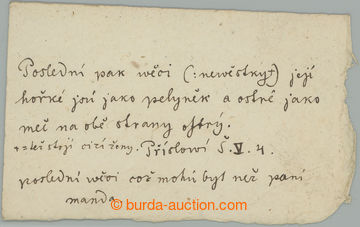 Poslední pak wěci (: newěstky+) její
hořké jsú jako pelyněk a ostré jako
meč na obě strany ostrý.
+ = též stojí cizí ženy. Přísloví Š. V. 4.
poslední wěci což mohú být než paní
manda
© burda-auction.com